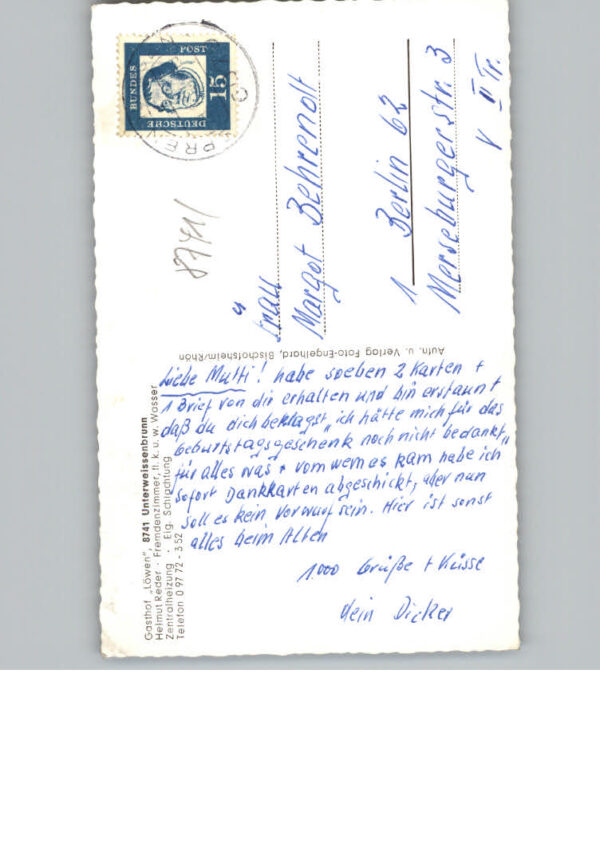 Gasthof „Löwen", 8741 Unterweissenbrunn
Helmut Reder · Fremdenzimmer, fl. k. u. w. Wasser
Zentralheizung · Eig. Schlachtung
Telefon 0 97 72 - 3 52
Liebe Mutti! habe soeben 2 Karten +
1 Brief von dir erhalten und bin erstaunt
daß du dich beklagst „ich hätte mich für das
Geburtstagsgeschenk noch nicht bedankt"
für alles was + vom wem es kam habe ich
sofort Dankkarten abgeschickt, aber nun
soll es kein Vorwurf sein. Hier ist sonst
alles beim Alten
1.000 Grüße + Küsse
dein Dicker
Aufn. u. Verlag Foto-Engelhard, Bischofsheim/Rhön
DEUTSCHE
BUNDES
POST
15
8741/
Frau
Margot Behrendt
1 Berlin 62
Merseburgerstr. 3
V II Tr.